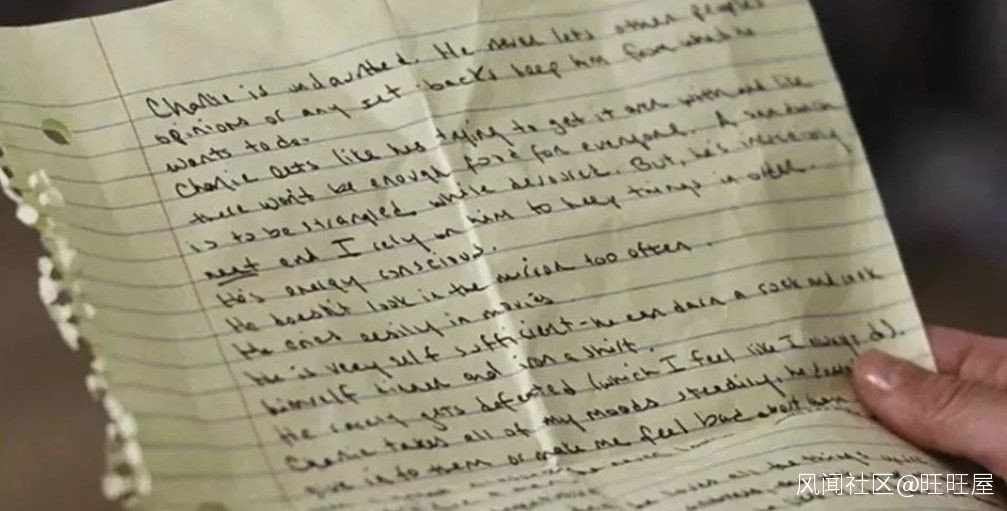 Charlie is undaunted. He never lets other peoples
opinions or any set-backs keep him from what he
wants to do.
Charlie eats like he's trying to get it over with and like
there won't be enough food for everyone. A sandwich
is to be strangled while devoured. But, he's incredibly
neat and I rely on him to keep things in order.
He's energy conscious.
He doesn't look in the mirror too often.
He cries easily in movies.
He is very self sufficient - he can darn a sock and cook
himself dinner and iron a shirt.
He rarely gets defeated (which I feel like I always do).
Charlie takes all of my moods steadily, he doesn't
give in to them or make me feel bad about them
all the things
风闻社区@旺旺屋